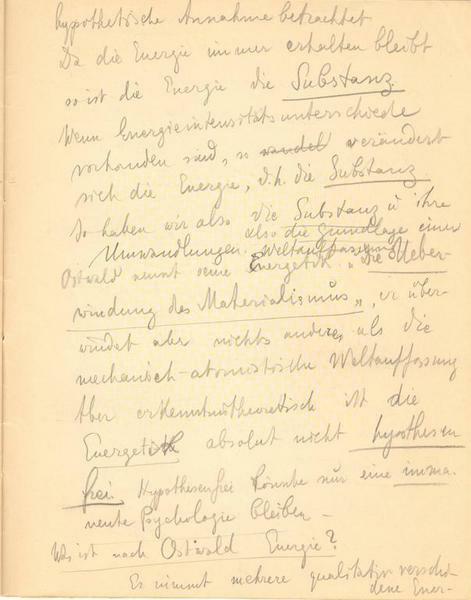 hypothetische Annahme betrachtet
Da die Energie immer erhalten bleibt
so ist die Energie die Substanz.
Wenn Energieintensitätsunterschiede
vorhanden sind, so wandel verändert
sich die Energie, d.h. die Substanz
So haben wir also die Substanz u ihre
Umwandlungen. also die Grundlage einer Weltauffassung
Ostwald nennt seine Energetik „die Ueber-
windung des Materialismus„, er über-
windet aber nichts anderes als die
mechanisch-atomistische Weltauffassung
Aber erkenntnistheoretisch ist die
Energetik absolut nicht hypothesen
frei. Hypothesenfrei könnte nur eine imma-
nente Psychologie bleiben –
Was ist nach Ostwald Energie?
Es nimmt mehrere qualitativ verschie
dene Ener-